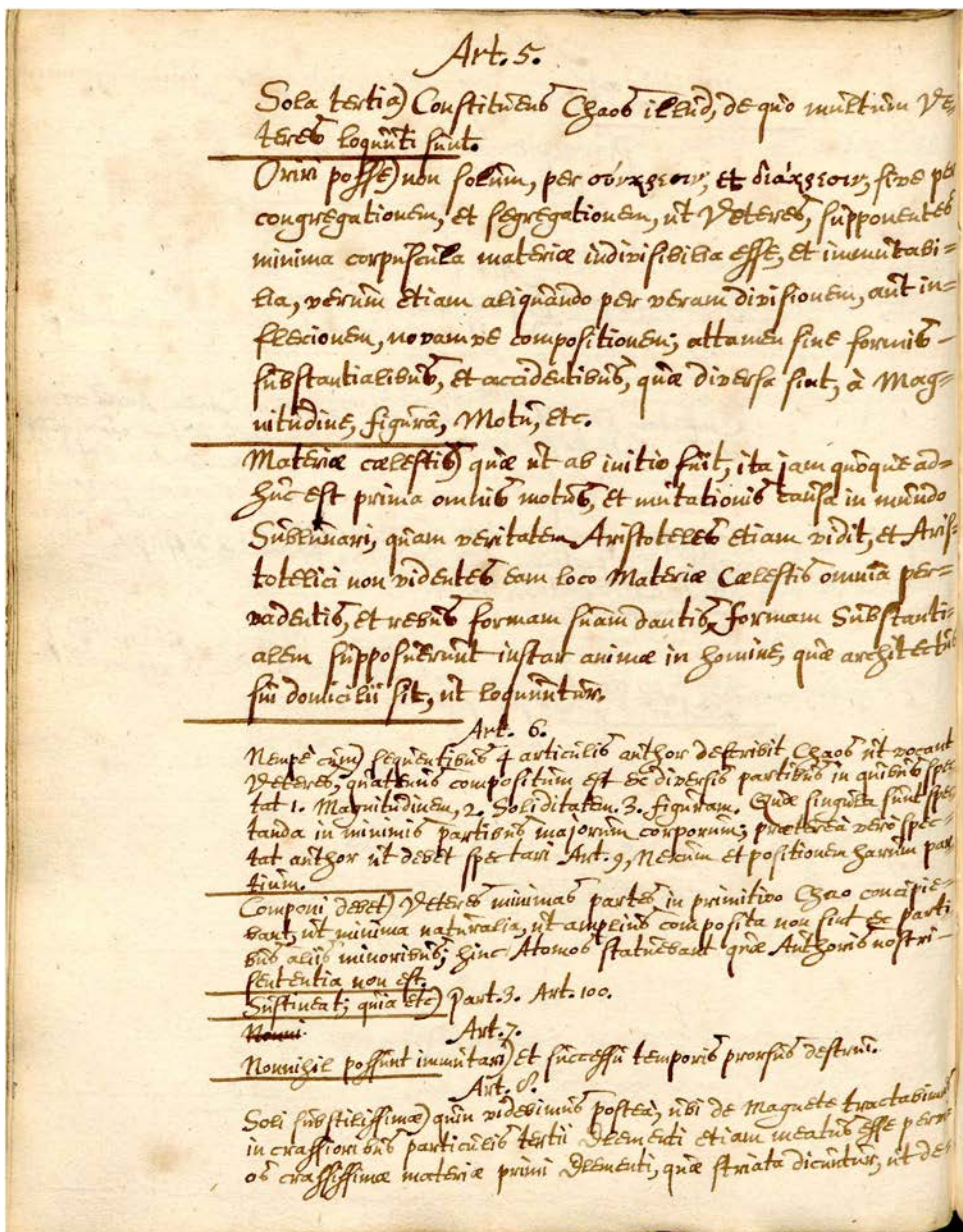 Art. 5.
Sola tertia) Constituens Chaos illud, de quo multum Ve=
teres loquuti sunt.
Oriri posse) non solum, per σύγκρισιν, et διάκρισιν, sive per
congregationem, et segregationem, ut Veteres, supponentes
minima corpuscula materiæ indivisibilia esse, et immutabi=
lia, verum etiam aliquando per veram divisionem, aut in=
flexionem, novamve compositionem; attamen sine formis
substantialibus, et accidentibus, quæ diversa sint, à Mag=
nitudine, figurâ, Motu, etc.
Materiæ cælestis) quæ ut ab initio fuit, ita jam quoque ad=
huc est prima omnis motus, et mutationis causa in mundo
Sublunari, quam veritatem Aristoteles etiam vidit, et Aris=
totelici non videntes eam loco Materiæ Cælestis omnia per=
vadentis, et rebus formam suam dantis, formam Substanti=
alem supposuerunt instar animæ in homine, quæ architectus
sui domicilii sit, ut loquuntur.
Art. 6.
Nempè cùm) sequentibus 4 articulis author describit Chaos ut vocant
Veteres, quatenus compositum est ex diversis partibus in quibus spec
tat 1. Magnitudinem, 2. Soliditatem. 3. figuram. Quæ singula sunt spec
tanda in minimis partibus majorum corporum; prætereà verò spec=
tat author ut debet spectari Art. 9, Nexum et positionem harum par
tium.
Componi debet) Veteres minimas partes in primitivo Chao concipie=
bant, ut minima naturalia, ut amplius composita non sint ex parti
bus aliis minoribus; hinc Atomos statuebant quæ Authoris nostri
sententia non est.
Sustineat; quia etc) Part. 3. Art. 100.
Nonni
Art. 7.
Nonnihil possunt immutari) et successu temporis prorsus destrui.
Art. 8.
Soli subtilissimæ) quin videbimus posteà, ubi de Magnete tractabimus
in crassioribus particulis tertii Elementi etiam meatus esse pervi
os crassissimæ materiæ primi Elementi, quæ striata dicuntur, ut de